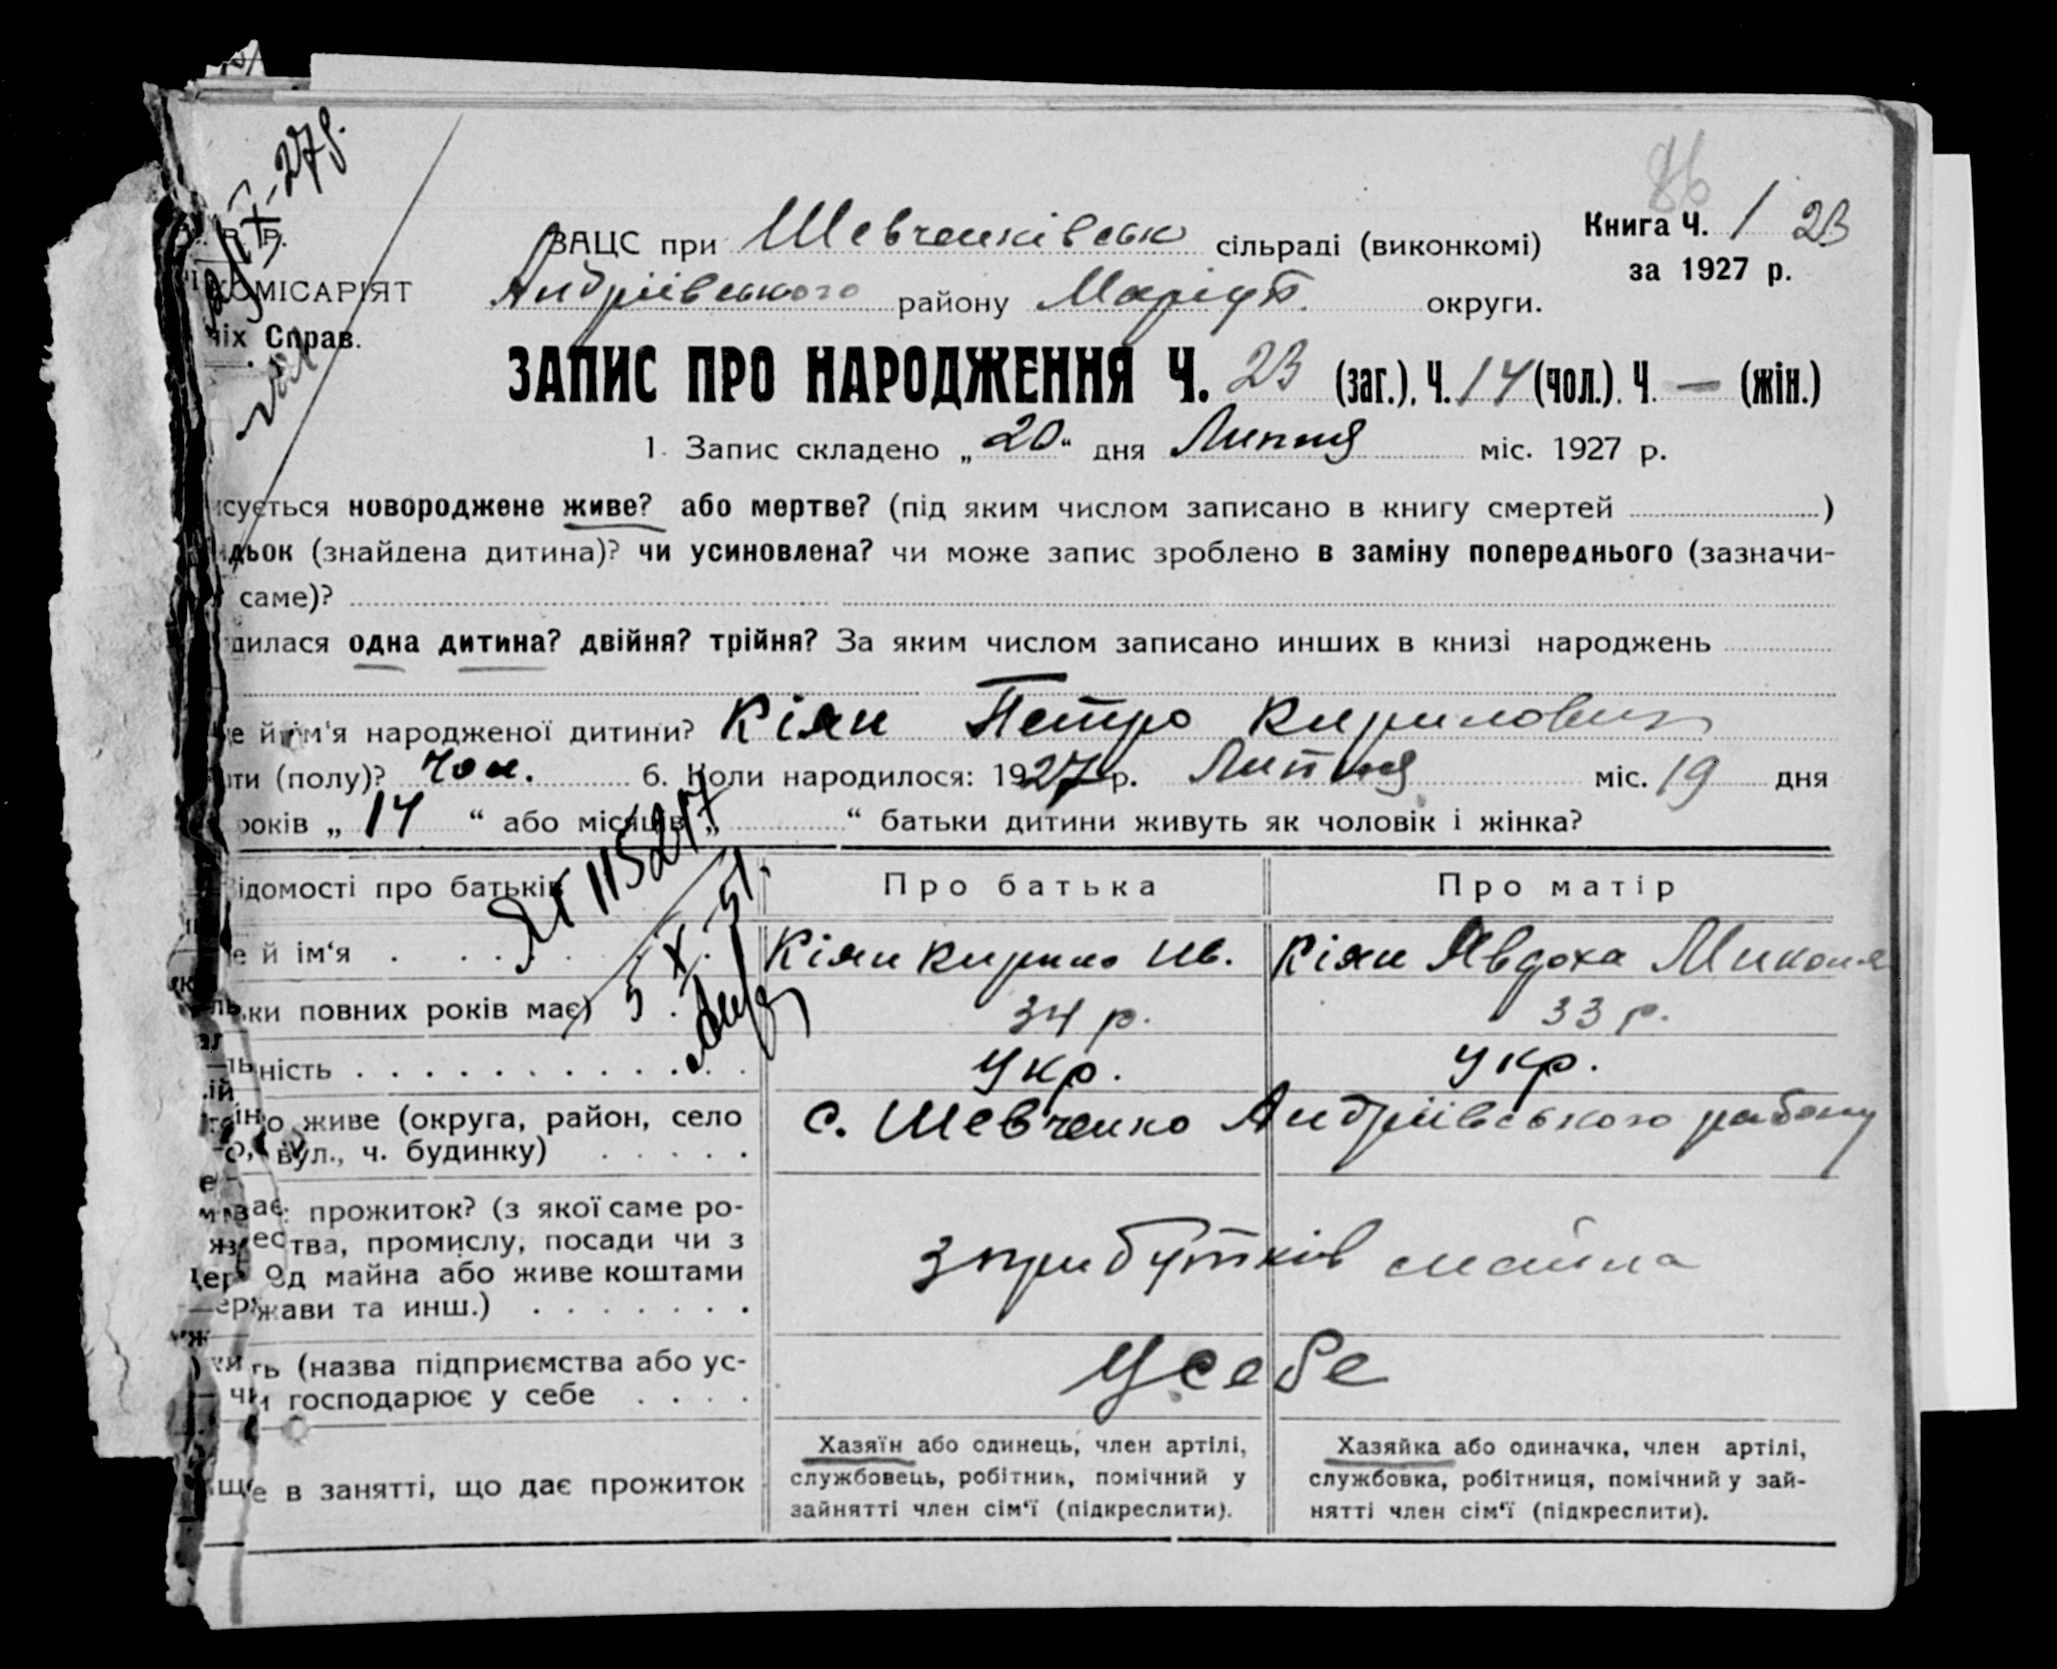 86
ЗАЦС при Шевченківськ сільраді (виконкомі) Книга Ч. 1 23
за 1927 р.
КОМІСАРІЯТ Андріївського району Маріуп. округи.
Справ.
ЗАПИС ПРО НАРОДЖЕННЯ Ч. 23 (заг.), Ч. 14 (чол.). Ч. — (жін.)
1. Запис складено „ 20 “ дня Липня міс. 1927 р.
сується новороджене живе? або мертве? (під яким числом записано в книгу смертей )
дьок (знайдена дитина)? чи усиновлена? чи може запис зроблено в заміну попереднього (зазначи-
саме)?
дилася одна дитина? двійня? трійня? За яким числом записано инших в книзі народжень
е й ім'я народженої дитини? Кіян Петро Кирилович
ати (полу)? Чол. 6. Коли народилося: 1927 р. Липня міс. 19 дня
років „ 14 “ або місяців „ “ батьки дитини живуть як чоловік і жінка?
ЯГ 115217
5 X. 51.
відомості про батьків Про батька Про матір
е й ім‘я Кіян Кирило Ив. Кіян Явдоха Микола
ьки повних років має) 34 р. 33 р.
ність укр. укр.
живе (округа, район, село с. Шевченко Андріівського району
вул., ч. будинку)
прожиток? (з якої саме ро-
тва, промислу, посади чи з з прибутків майна
од майна або живе коштами
жави та инш.)
ть (назва підприємства або ус- У себе
чи господарює у себе
Хазяїн або одинець, член артілі, Хазяйка або одиначка, член артілі,
ще в занятті, що дає прожиток службовець, робітник, помічний у службовка, робітниця, помічний у зай-
зайнятті член сім‘ї (підкреслити). нятті член сім‘ї (підкреслити).